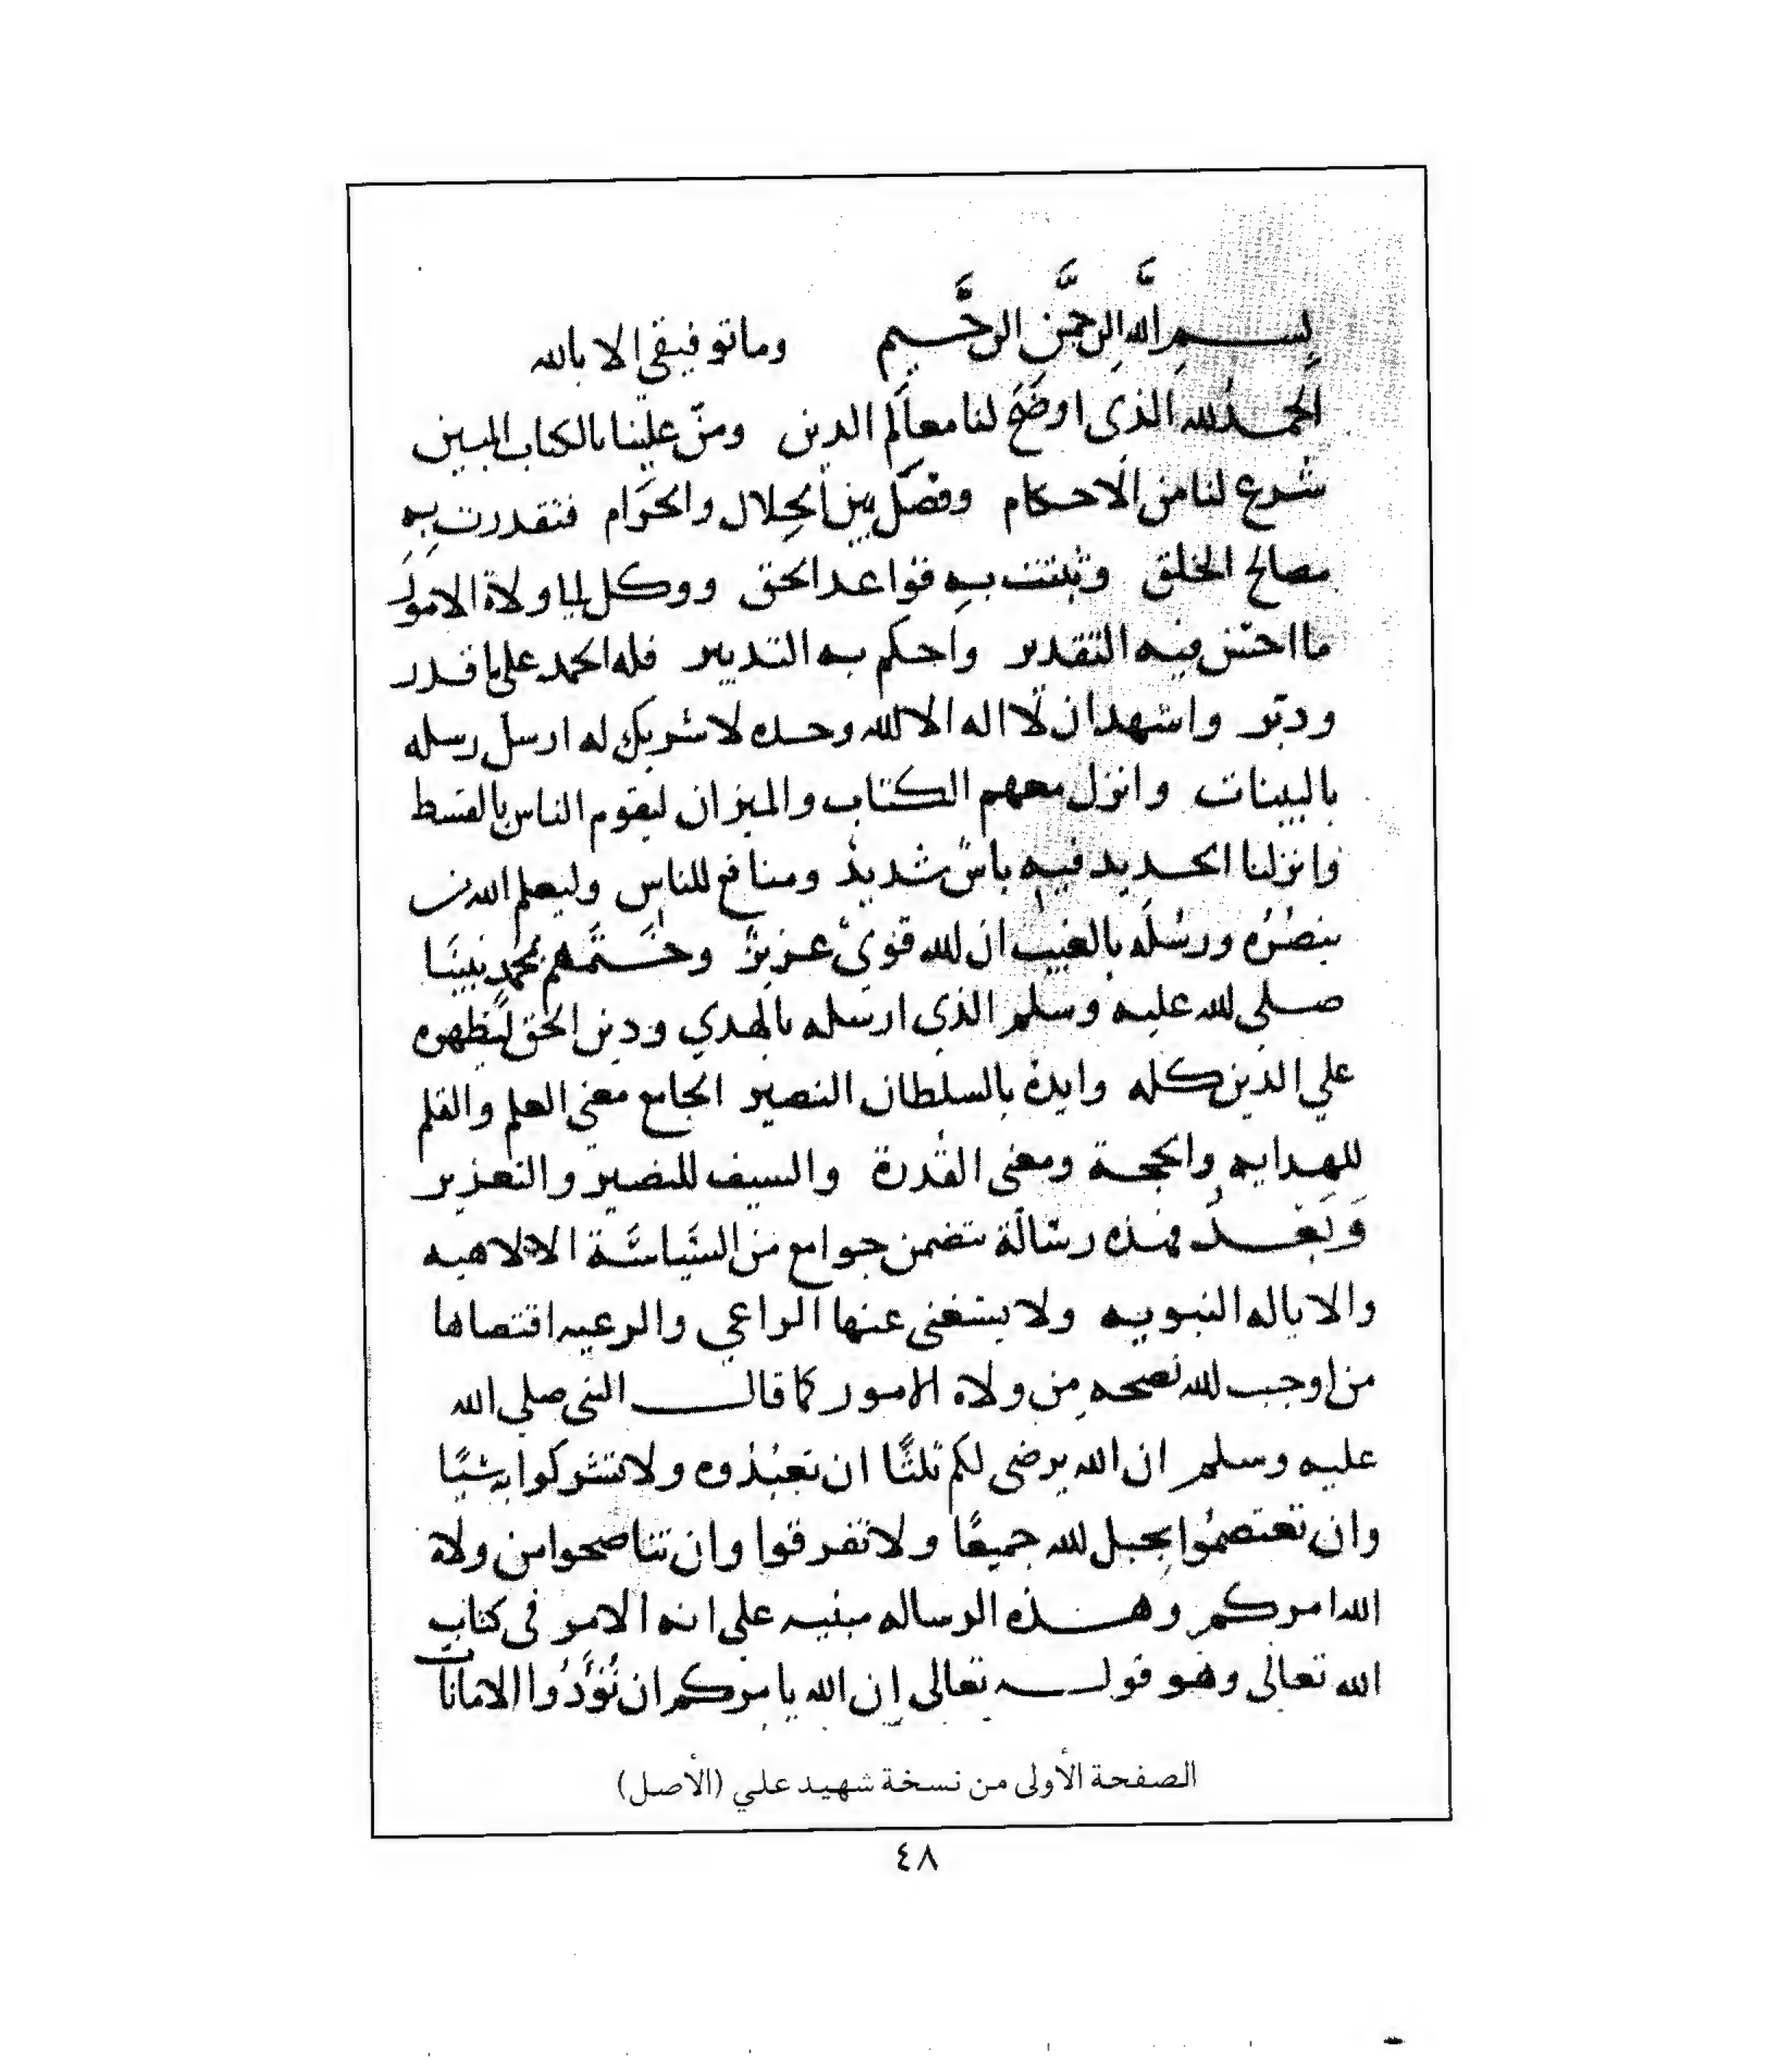 بِسمِ اللهِ الرحمٰنِ الرحَّيم وما توفيقي الا بالله
الحمدُ لله الذي اوضَح لنا معالم الدين ومنّ علينا بالكتاب المبين
شرع لنا من الاحكام وفصّل بين الحلال والحرَام فتقدرت بِه
مصالح الخلق وثبتت بِه قواعد الحق ووكل الى ولاة الامور
ما احسن فيه التقدير واحكم به التدبير فله الحمد على ما قدر
ودبّر واشهد ان لا اله الا الله وحده لا شريك له ارسل رسله
بالبينات وانزل معهم الكتاب والميزان ليقوم الناس بالقسط
وانزلنا الحديد فيه باسٌ شديدٌ ومنافع للناس وليعلم الله من
ينصُرُه ورسُلَه بالغيب ان الله قويٌ عزيزٌ وختَمَهم بمحمدٍ نبينَا
صلي الله عليه وسلم الذي ارسله بالهدي ودين الحق ليُظهره
علي الدين كله وايدهُ بالسلطان النصير الجامع معني العلم والقلم
للهدايه والحجة ومعني القُدرة والسيف للنصير والتعزير
وَبَعْدُ فهذه رسَالَة تتضمن جوامع من السّيَاسَة الالاهيه
والاياله النبويه ولا يستغني عنها الراعي والرعيه اقتصاها
من اوجب الله نصحه من ولاه الامور كما قال النبي صلي الله
عليه وسلم ان الله يرضى لكم ثلثًا ان تعبُدُوه ولا تشركوا به شيًا
وان تعتصمُوا بحبل الله جميعًا ولا تفرقوا وان تناصحوا من ولاه
الله امركم وهذه الرساله مبنيه علي انه الامر في كتاب
الله تعالى وهو قوله تعالى إن الله يامركم ان تُؤَدُوا الامانات
الصفحة الأولى من نسخة شهيد علي (الأصل)
٤٨